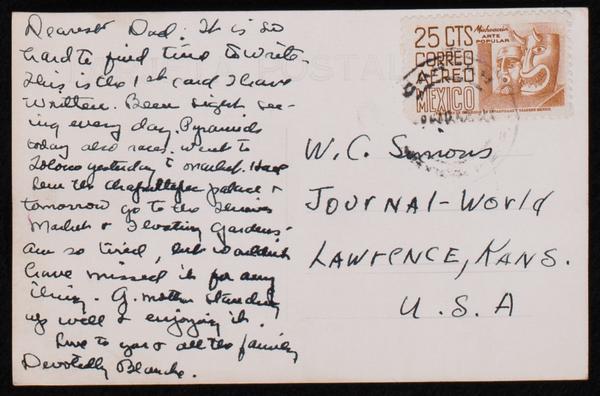 Dearest Dad: It is so
hard to find time to write.
This is the 1st card I have
written. Been sight see-
ing every day. Pyramids
today also races. Went to
Toloco yesterday to market. Have
seen the Chapultepec palace &
tomorrow go to the
Market & Floating Gardens.
Am so tired, but wouldn't
have missed it for any
thing. G. mother standing
up well & enjoying it.
Love to you & all the family
Devotedly Blanche.
25 CTS
CORREO
AEREO
MEXICO
Michoacán
ARTE
POPULAR
W. C. Simons
JOURNAL-WORLD
LAWRENCE, KANS.
U.S.A